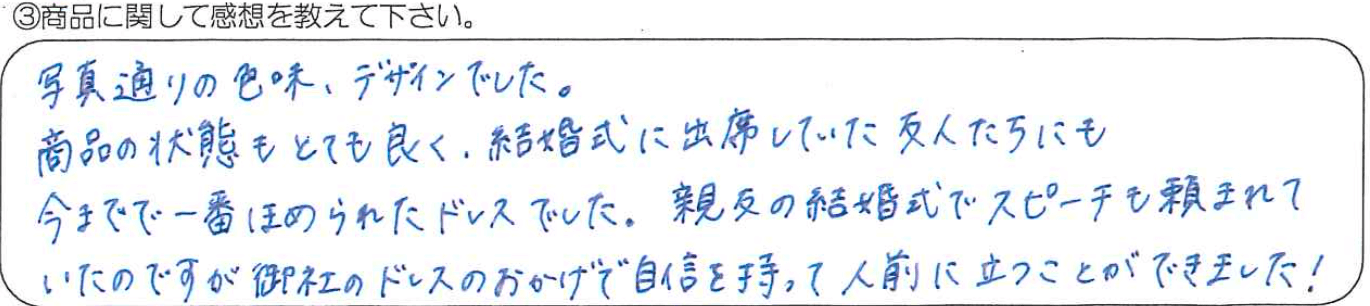 ③商品に関して感想を教えて下さい。
写真通りの色味、デザインでした。
商品の状態もとても良く、結婚式に出席していた友人たちにも
今までで一番ほめられたドレスでした。親友の結婚式でスピーチも頼まれて
いたのですが御社のドレスのおかげで自信を持って人前に立つことができました!